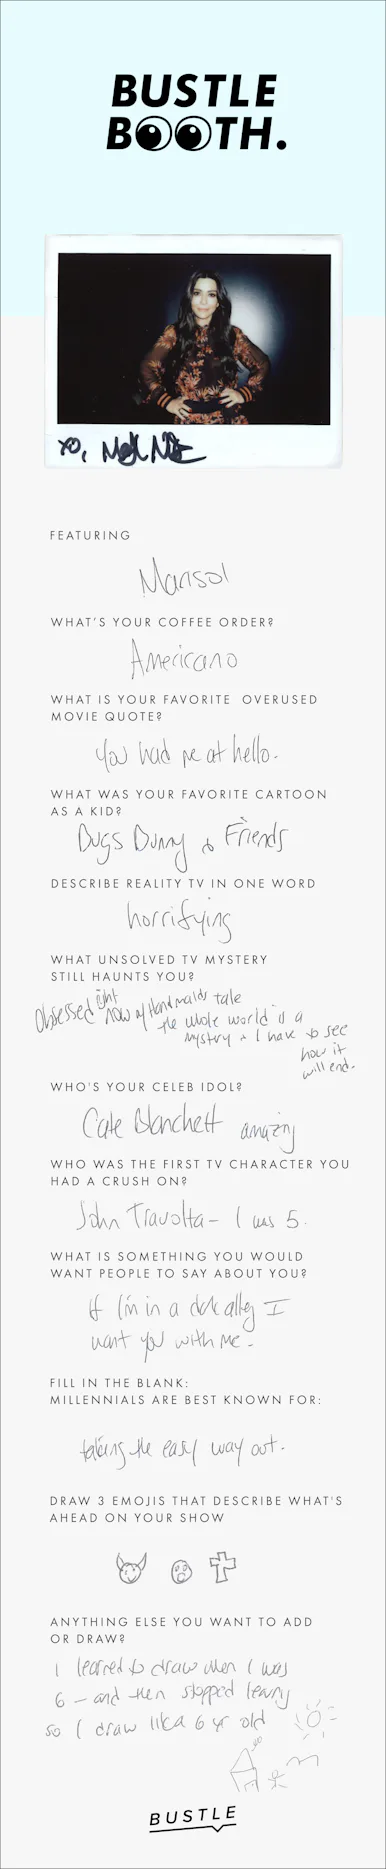 BUSTLE
BOOTH.
XO,
FEATURING
Marisol
WHAT'S YOUR COFFEE ORDER?
Americano
WHAT IS YOUR FAVORITE OVERUSED
MOVIE QUOTE?
You had me at hello.
WHAT WAS YOUR FAVORITE CARTOON
AS A KID?
Bugs Bunny & Friends
DESCRIBE REALITY TV IN ONE WORD
horrifying
WHAT UNSOLVED TV MYSTERY
STILL HAUNTS YOU?
Obsessed right now w/ Handmaids tale
the whole world is a
mystery & I have to see
how it
will end.
WHO'S YOUR CELEB IDOL?
Cate Blanchett amazing
WHO WAS THE FIRST TV CHARACTER YOU
HAD A CRUSH ON?
John Travolta - I was 5.
WHAT IS SOMETHING YOU WOULD
WANT PEOPLE TO SAY ABOUT YOU?
If I'm in a dark alley I
want you with me.
FILL IN THE BLANK:
MILLENNIALS ARE BEST KNOWN FOR:
taking the easy way out.
DRAW 3 EMOJIS THAT DESCRIBE WHAT'S
AHEAD ON YOUR SHOW
ANYTHING ELSE YOU WANT TO ADD
OR DRAW?
I learned to draw when I was
6 - and then stopped learning
so I draw like a 6 yr old
BUSTLE